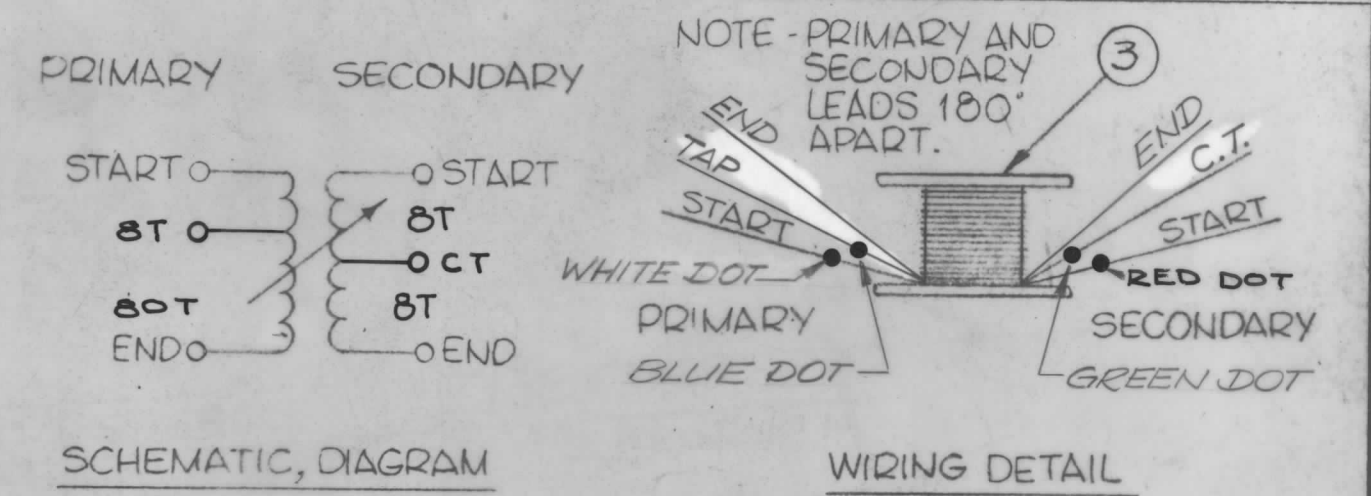 PRIMARY
SECONDARY
START
START
8T
8T
CT
80T
8T
END
END
SCHEMATIC, DIAGRAM
NOTE - PRIMARY AND
SECONDARY
LEADS 180°
APART.
3
END
TAP
START
WHITE DOT
PRIMARY
BLUE DOT
END
C.T.
START
RED DOT
SECONDARY
GREEN DOT
WIRING DETAIL